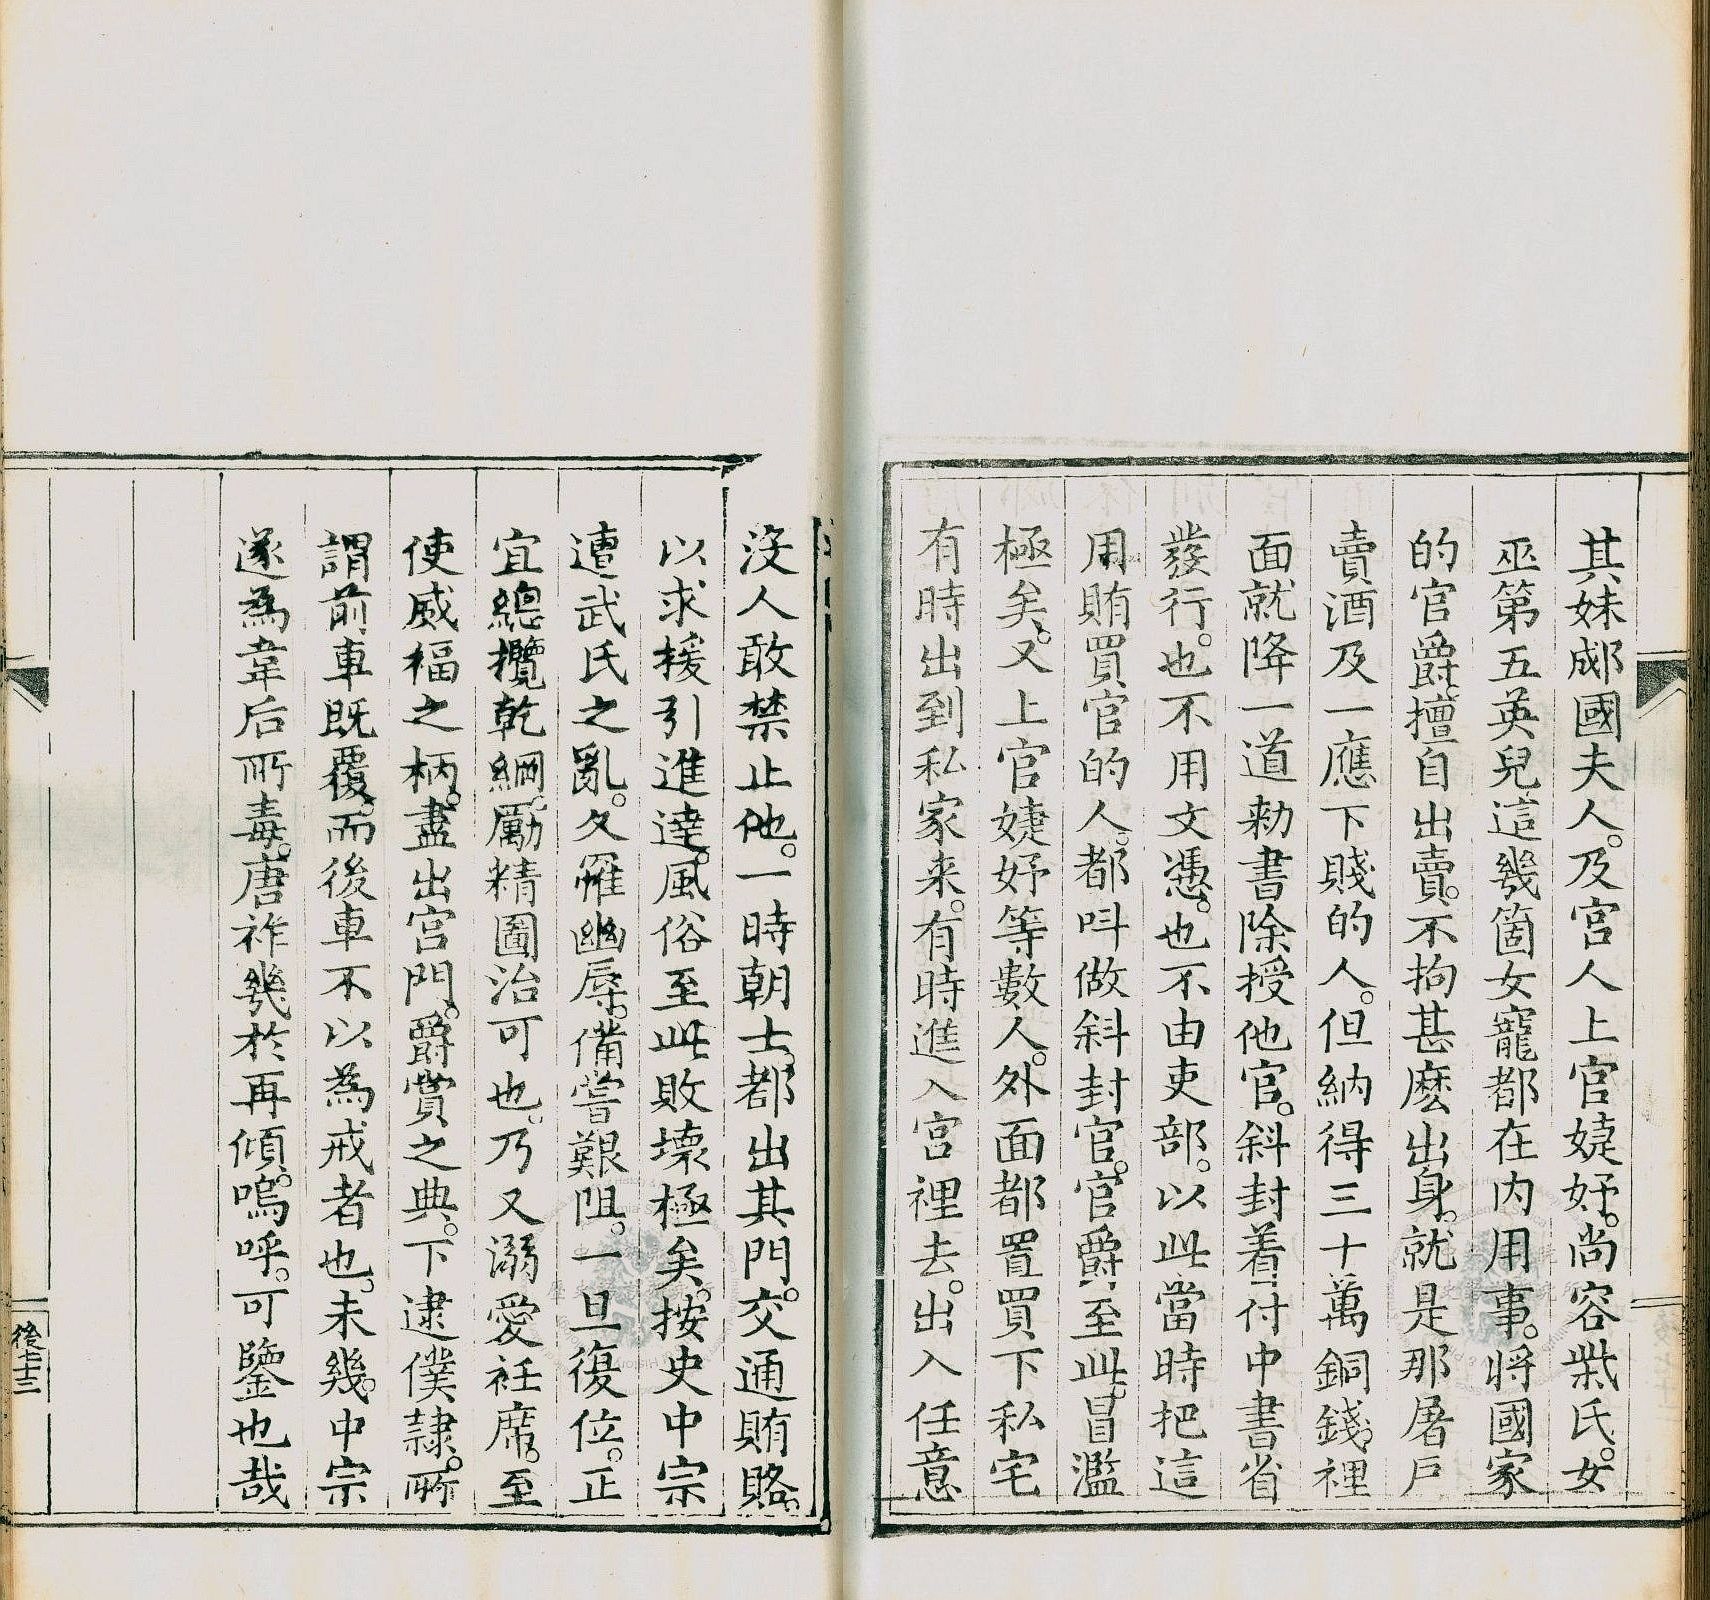 其妹郕國夫人。及宮人上官婕妤。尚容柴氏。女
巫第五英兒這幾箇女寵都在內用事。將國家
的官爵。擅自出賣。不拘甚麼出身。就是那屠戶
賣酒及一應下賤的人。但納得三十萬銅錢。裡
面就降一道勑書除授他官。斜封着付中書省
發行。也不用文憑。也不由吏部。以此當時把這
用賄買官的人。都呌做斜封官。官爵至此。冒濫
極矣。又上官婕妤等數人。外面都置買下私宅
有時出到私家来。有時進入宮裡去。出入任意
沒人敢禁止他。一時朝士。都出其門。交通賄賂。
以求援引進達。風俗至此敗壞極矣。按史中宗
遭武氏之亂。久罹幽辱。備嘗艱阻。一旦復位。正
宜總攬乾綱。勵精圖治可也。乃又溺愛衽席。至
使威福之柄。盡出宮門。爵賞之典。下逮僕隷。所
謂前車既覆。而後車不以為戒者也。未幾。中宗
遂為韋后所毒。唐祚幾於再傾。嗚呼。可鑒也哉
後七十三